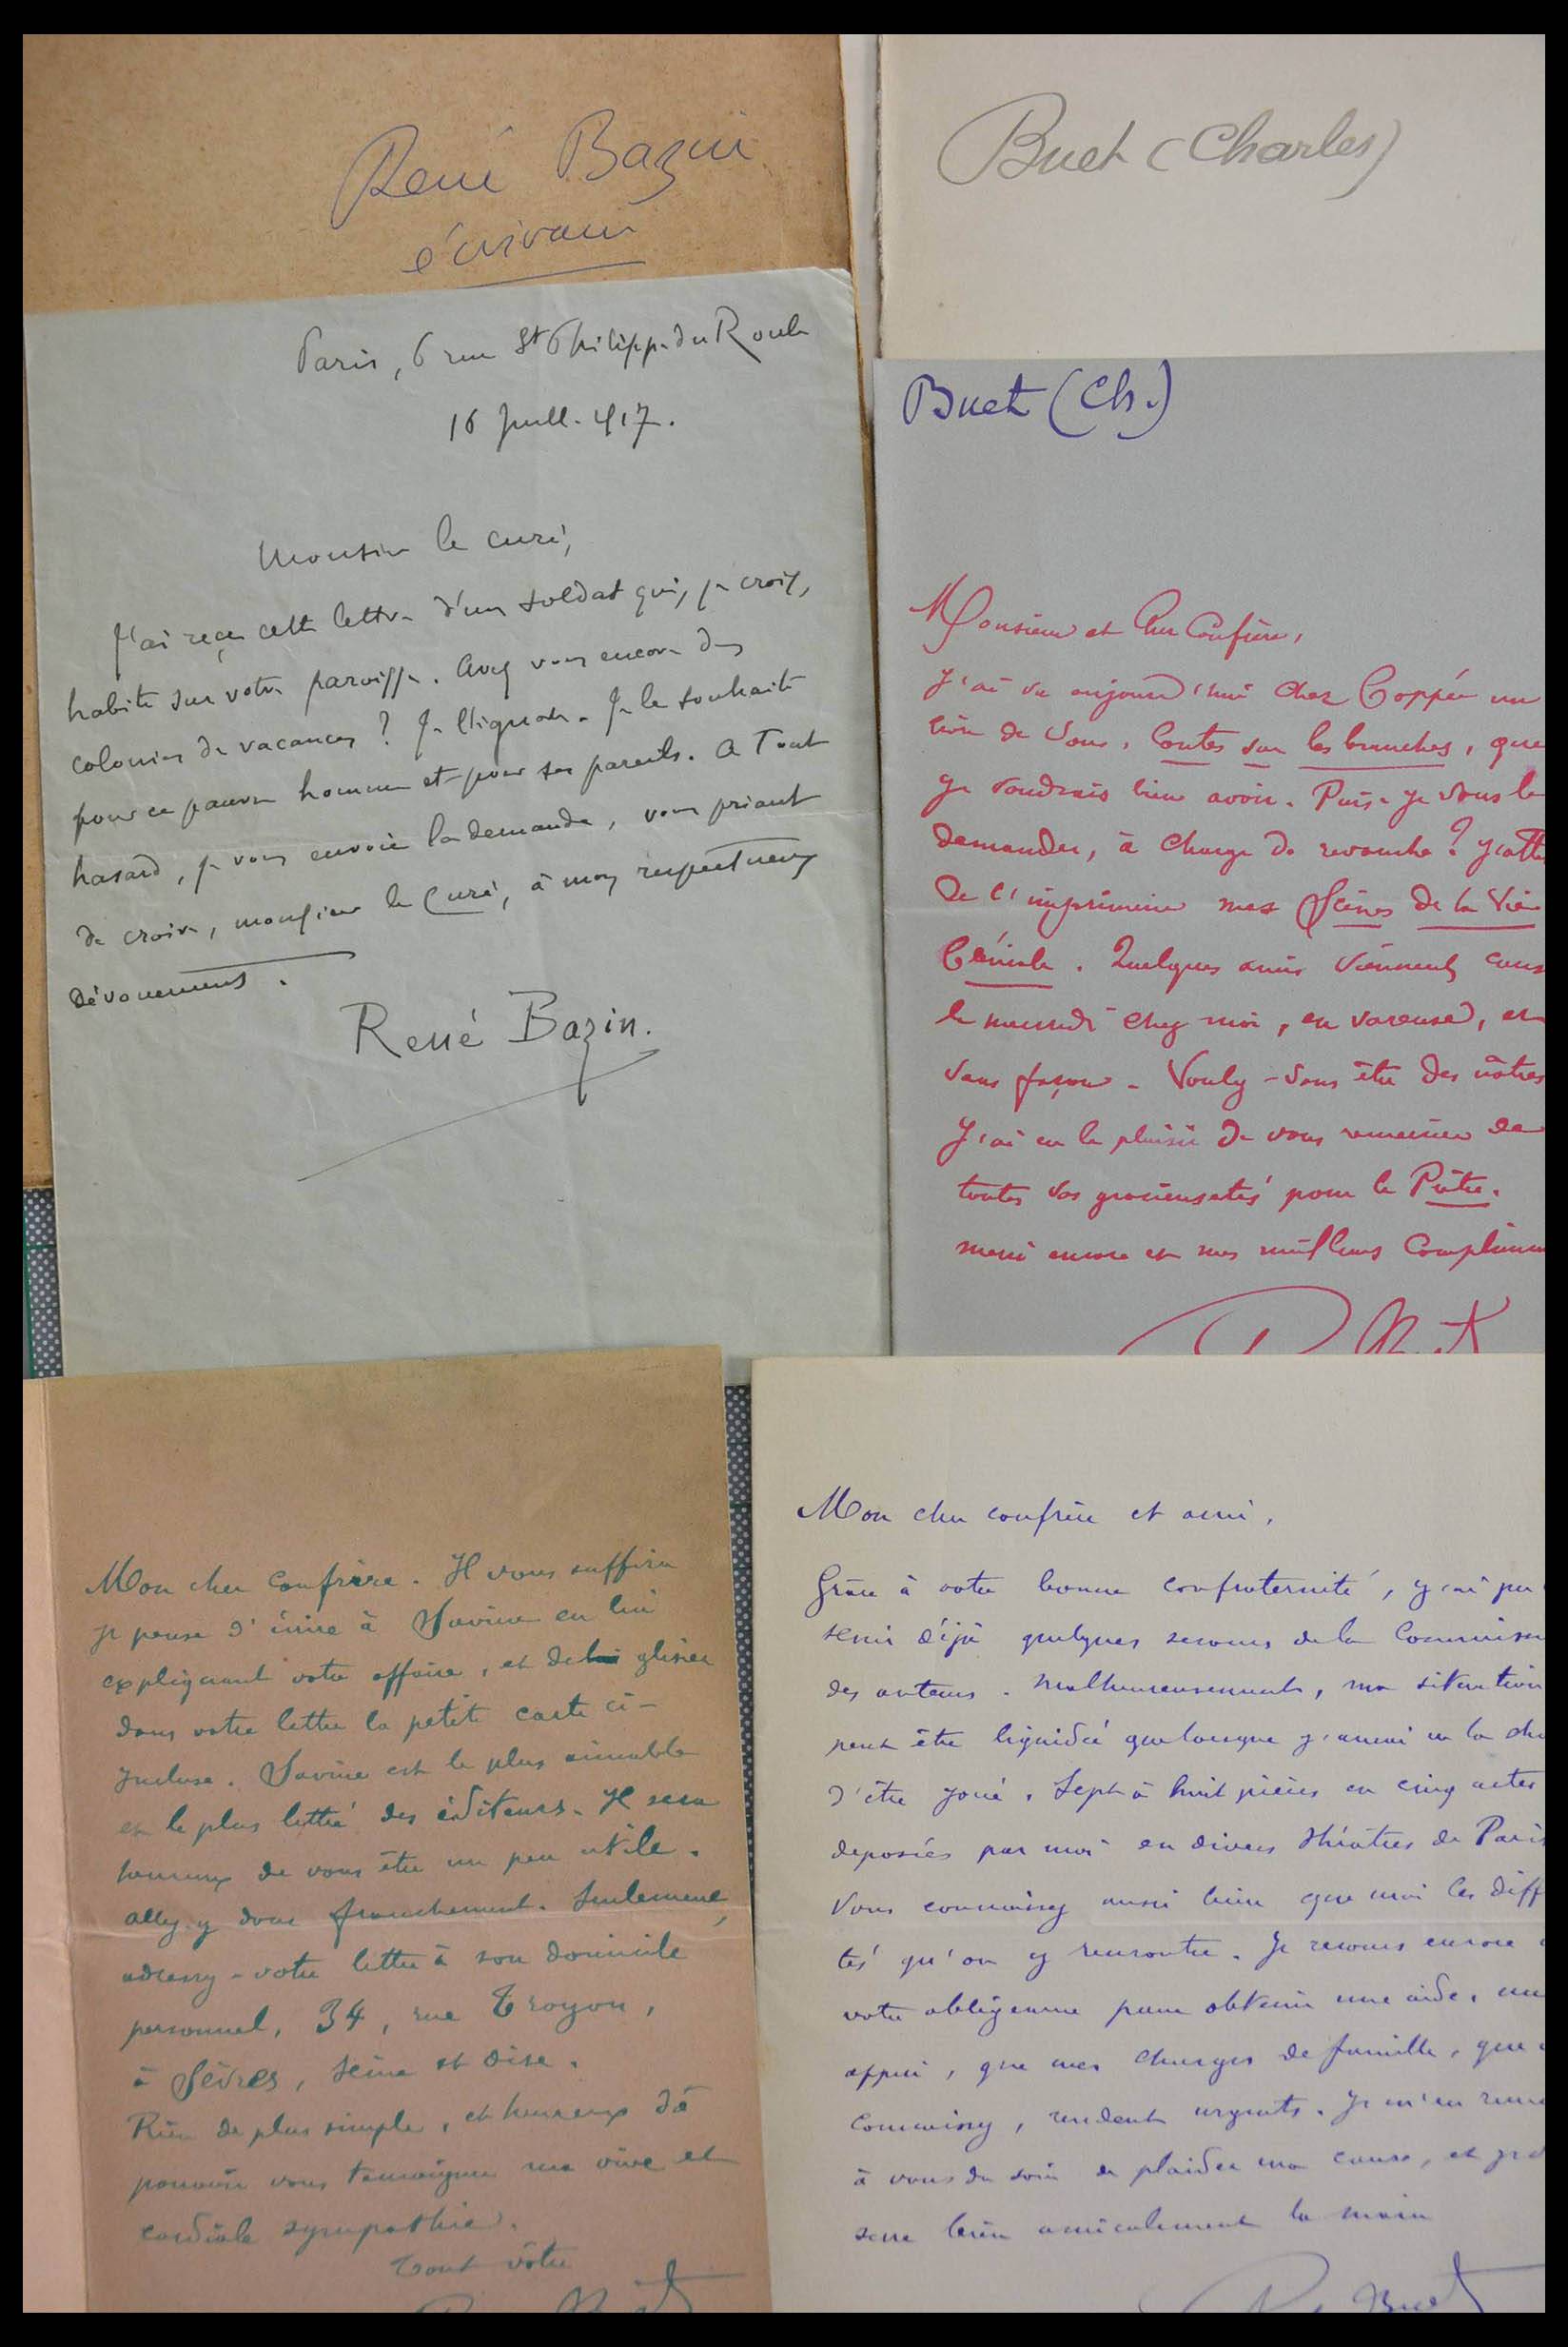 René Bazin
écrivain
Paris, 6 rue St Philippe du Roule
16 Juill. 1917.
Monsieur le curé,
J'ai reçu cette lettre d'un soldat qui, je crois,
habite sur votre paroisse. Avez vous encore des
colonies de vacances ? Je l'ignore. Je le souhaite
pour ce pauvre homme et pour ses parents. A Tout
hasard, je vous envoie la demande, vous priant
de croire, monsieur le Curé, à mon respectueux
dévouement.
René Bazin.
Buet (Charles)
Buet (Ch.)
Monsieur et Cher Confrère,
J'ai vu aujourd'hui chez Coppée un
livre de vous, Contes sur les branches, que
je voudrais bien avoir. Puis-je vous le
demander, à charge de revanche ? J'atte
de l'imprimerie mes Scènes de la Vie
Cléricale. Quelques amis viennent caus
le mercredi chez moi, en vareuse, et
sans façon - Voulez-vous être des nôtres
J'ai eu le plaisir de vous remercier de
toutes vos gracieusetés pour le Prêtre.
merci encore et mes meilleurs Complimen
Mon cher confrère. Il vous suffira
je pense d'écrire à Savine en lui
expliquant votre affaire, et de lui glisser
dans votre lettre la petite carte ci-
incluse. Savine est le plus aimable
et le plus lettré des éditeurs. Il sera
heureux de vous être un peu utile.
allez-y donc franchement. Seulement,
adressez-votre lettre à son domicile
personnel, 34, rue Troyon,
à Sèvres, Seine et Oise.
Rien de plus simple, et heureux de
pouvoir vous témoigner ma vive et
cordiale sympathie.
Tout vôtre
Mon cher confrère et ami,
Grâce à votre bonne confraternité, j'ai pu
tenir déjà quelques secours de la Commission
des auteurs. Malheureusement, ma situation
peut être liquidée que lorsque j'aurai eu la cha
d'être joué. Sept à huit pièces en cinq actes
déposées par moi en divers théâtres de Paris
Vous connaissez aussi bien que moi les diff
tés qu'on y rencontre. Je recours encore
votre obligeance pour obtenir une aide, un
appui, que mes charges de famille, que
connaissez, rendent urgents. Je m'en reme
à vous du soin de plaider ma cause, et je
serre bien amicalement la main
Ch Buet